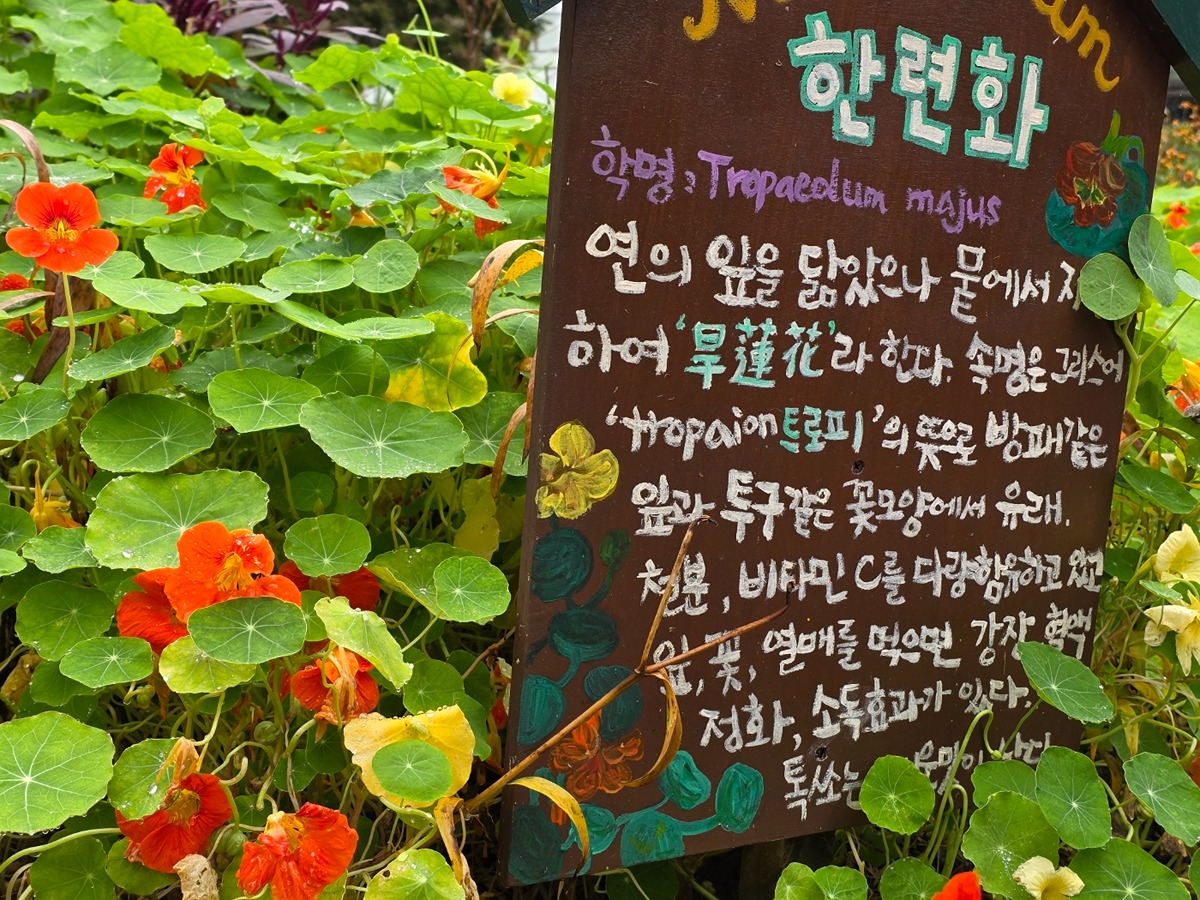 한련화
학명; Tropaeolum majus
연의 잎을 닮았으나 뭍에서 자
하여 '旱蓮花'라 한다. 속명은 그리스어
'tropaion트로피'의 뜻으로 방패같은
잎과 투구같은 꽃모양에서 유래.
철분, 비타민 C를 다량함유하고 있고
잎, 꽃, 열매를 먹으면 강장 혈액
정화, 소독효과가 있다.
톡쏘는